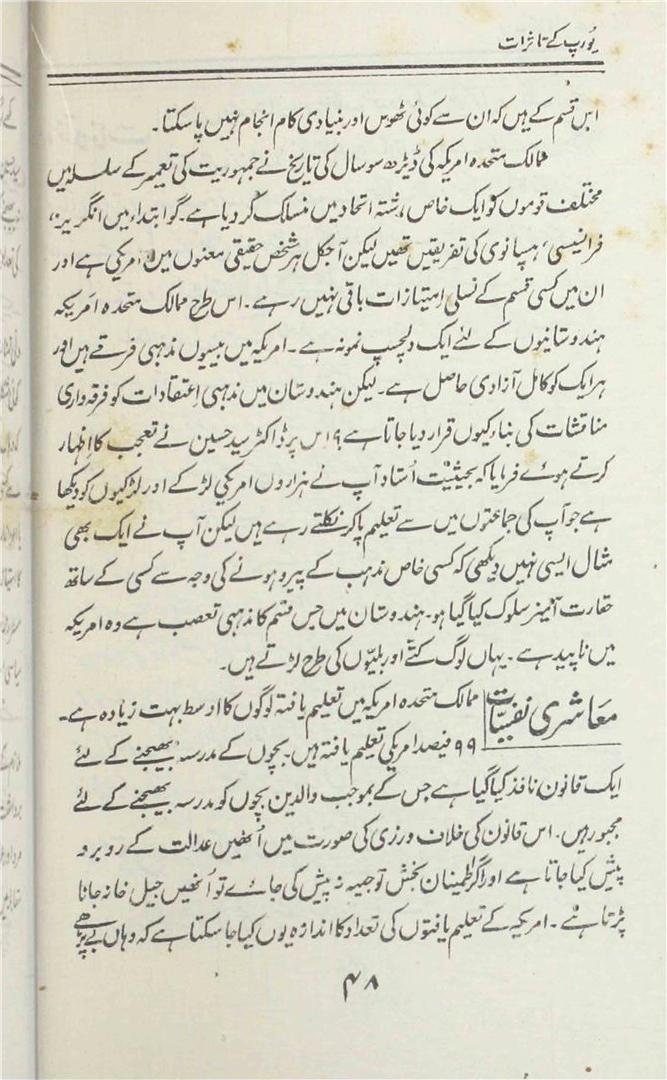 یورپ کے تاثرات
اس قسم کے ہیں کہ ان سے کوئی ٹھوس اور بنیادی کام انجام نہیں پا سکتا۔
ممالک متحدہ امریکہ کی ڈیڑھ سو سال کی تاریخ نے جمہوریت کی تعمیر کے سلسلہ میں
مختلف قوموں کو ایک خاص رشتہ اتحاد میں منسلک کر دیا ہے۔ گو ابتداء میں انگریز،
فرانسیسی، ہسپانوی کی تفریقیں تھیں لیکن آجکل ہر شخص حقیقی معنوں میں امریکی ہے اور
ان میں کسی قسم کے نسلی امتیازات باقی نہیں رہے۔ اس طرح ممالک متحدہ امریکہ
ہندوستانیوں کے لئے ایک دلچسپ نمونہ ہے۔ امریکہ میں بیسیوں مذہبی فرقے ہیں اور
ہر ایک کو کامل آزادی حاصل ہے۔ لیکن ہندوستان میں مذہبی اعتقادات کو فرقہ واری
مناقشات کی بناء کیوں قرار دیا جاتا ہے؟ اس پر ڈاکٹر سید حسین نے تعجب کا اظہار
کرتے ہوئے فرمایا کہ بحیثیت استاد آپ نے ہزاروں امریکی لڑکے اور لڑکیوں کو دیکھا
ہے جو آپ کی جماعتوں میں سے تعلیم پا کر نکلتے رہے ہیں لیکن آپ نے ایک بھی
مثال ایسی نہیں دیکھی کہ کسی خاص مذہب کے پیرو ہونے کی وجہ سے کسی کے ساتھ
حقارت آمیز سلوک کیا گیا ہو۔ ہندوستان میں جس قسم کا مذہبی تعصب ہے وہ امریکہ
میں ناپید ہے۔ یہاں لوگ کتے اور بلیوں کی طرح لڑتے ہیں۔
معاشری نفسیات ممالک متحدہ امریکہ میں تعلیم یافتہ لوگوں کا اوسط بہت زیادہ ہے۔
۹۹ فیصد امریکی تعلیم یافتہ ہیں۔ بچوں کے مدرسہ بھیجنے کے لئے
ایک قانون نافذ کیا گیا ہے جس کے بموجب والدین بچوں کو مدرسہ بھیجنے کے لئے
مجبور ہیں۔ اس قانون کی خلاف ورزی کی صورت میں اُنھیں عدالت کے روبرو
پیش کیا جاتا ہے اور اگر اطمینان بخش توجیہ نہ پیش کی جائے تو اُنھیں جیل خانہ جانا
پڑتا ہے۔ امریکہ کے تعلیم یافتوں کی تعداد کا اندازہ یوں کیا جا سکتا ہے کہ وہاں بے پڑھے
۴۸